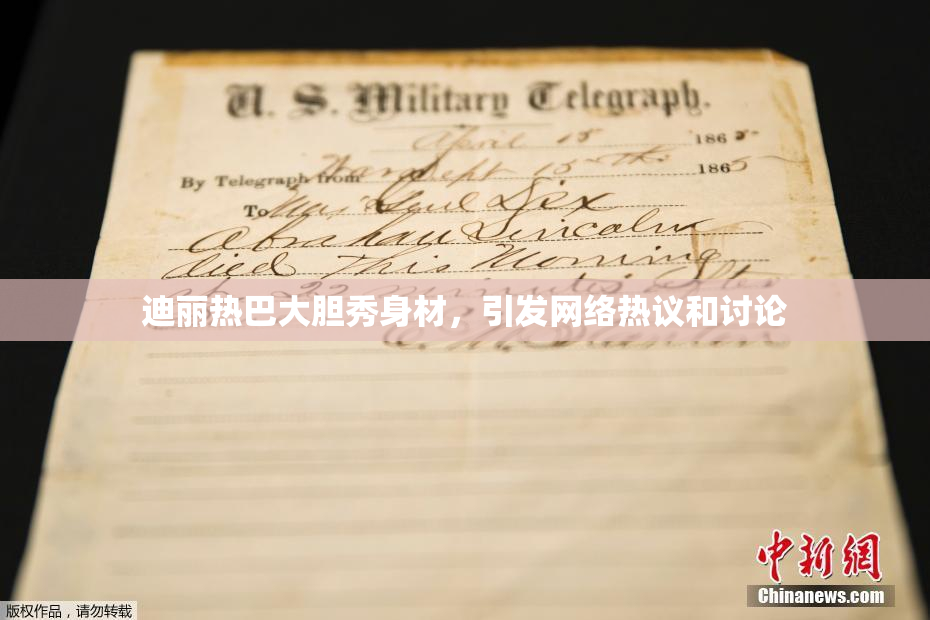 U. S. Military Telegraph.
April 15 1865
By Telegraph from War Dept 15th 1865
To Maj Genl Dix
Abraham Lincoln
died This Morning
at 22 minutes after
迪丽热巴大胆秀身材，引发网络热议和讨论
E. M. Stanton
中新網
Chinanews.com
版权作品，请勿转载